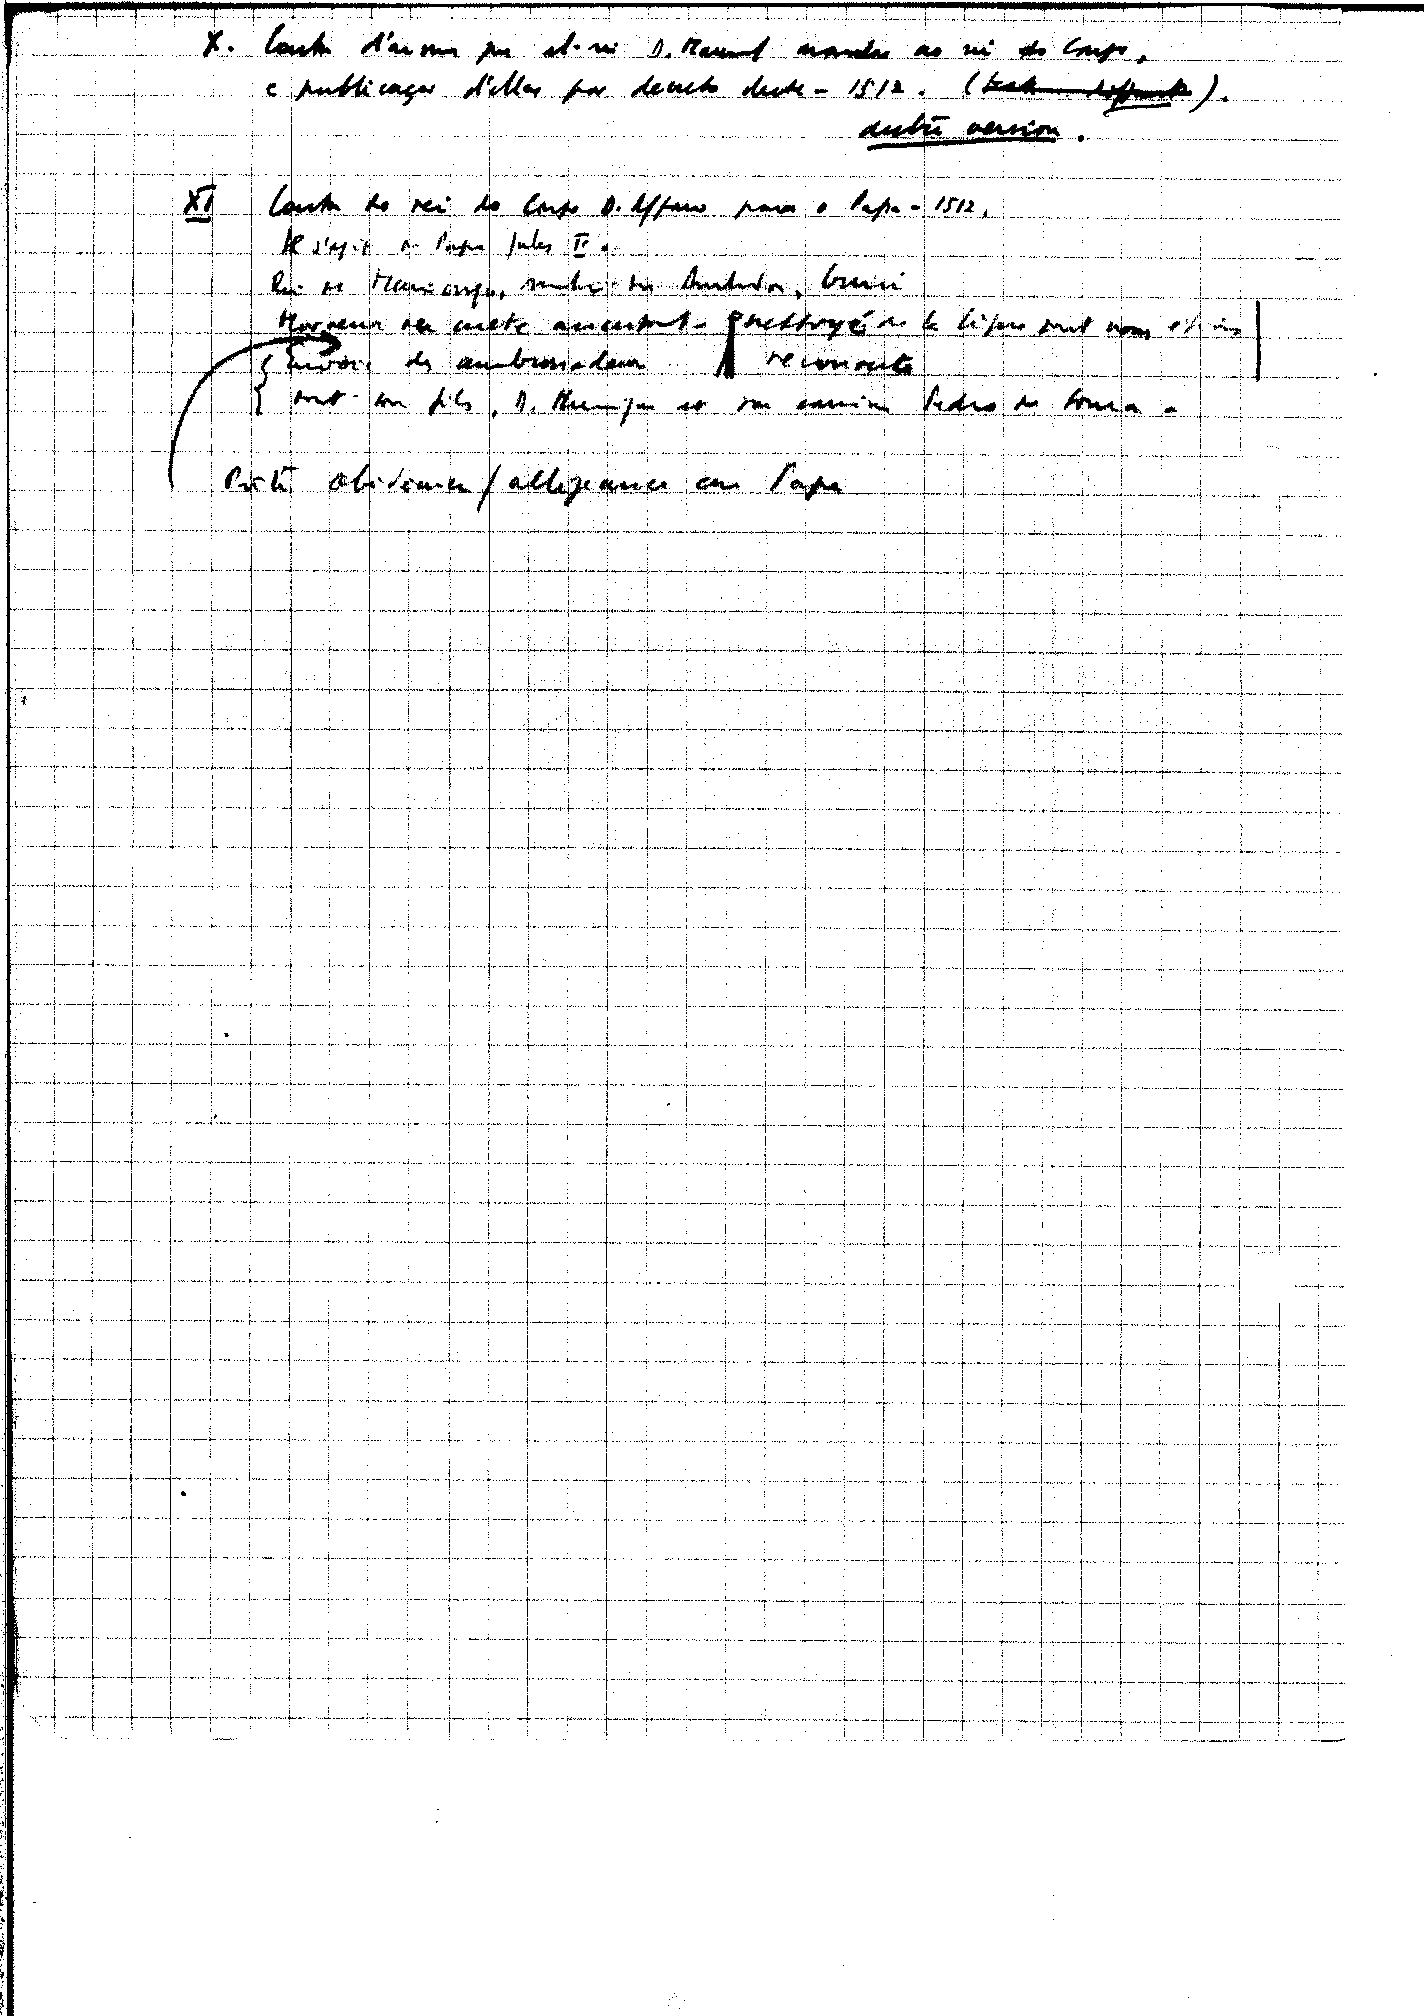 X. Carta d'armas que el-rei D. Manuel mandou ao rei do Congo,
e publicaçao d'ellas por decreto deste - 1512. (texte différente).
autre version.
XI Carta do rei do Congo D. Affonso para o Papa - 1512.
Il s'agit du Pape Jules II.
Roi de Manicongo,
envoie des ambassadeurs
reconnaite
dont son fils, D. Henrique et son cousin Pedro de Sousa -
Prête obédience / allégeance au Pape